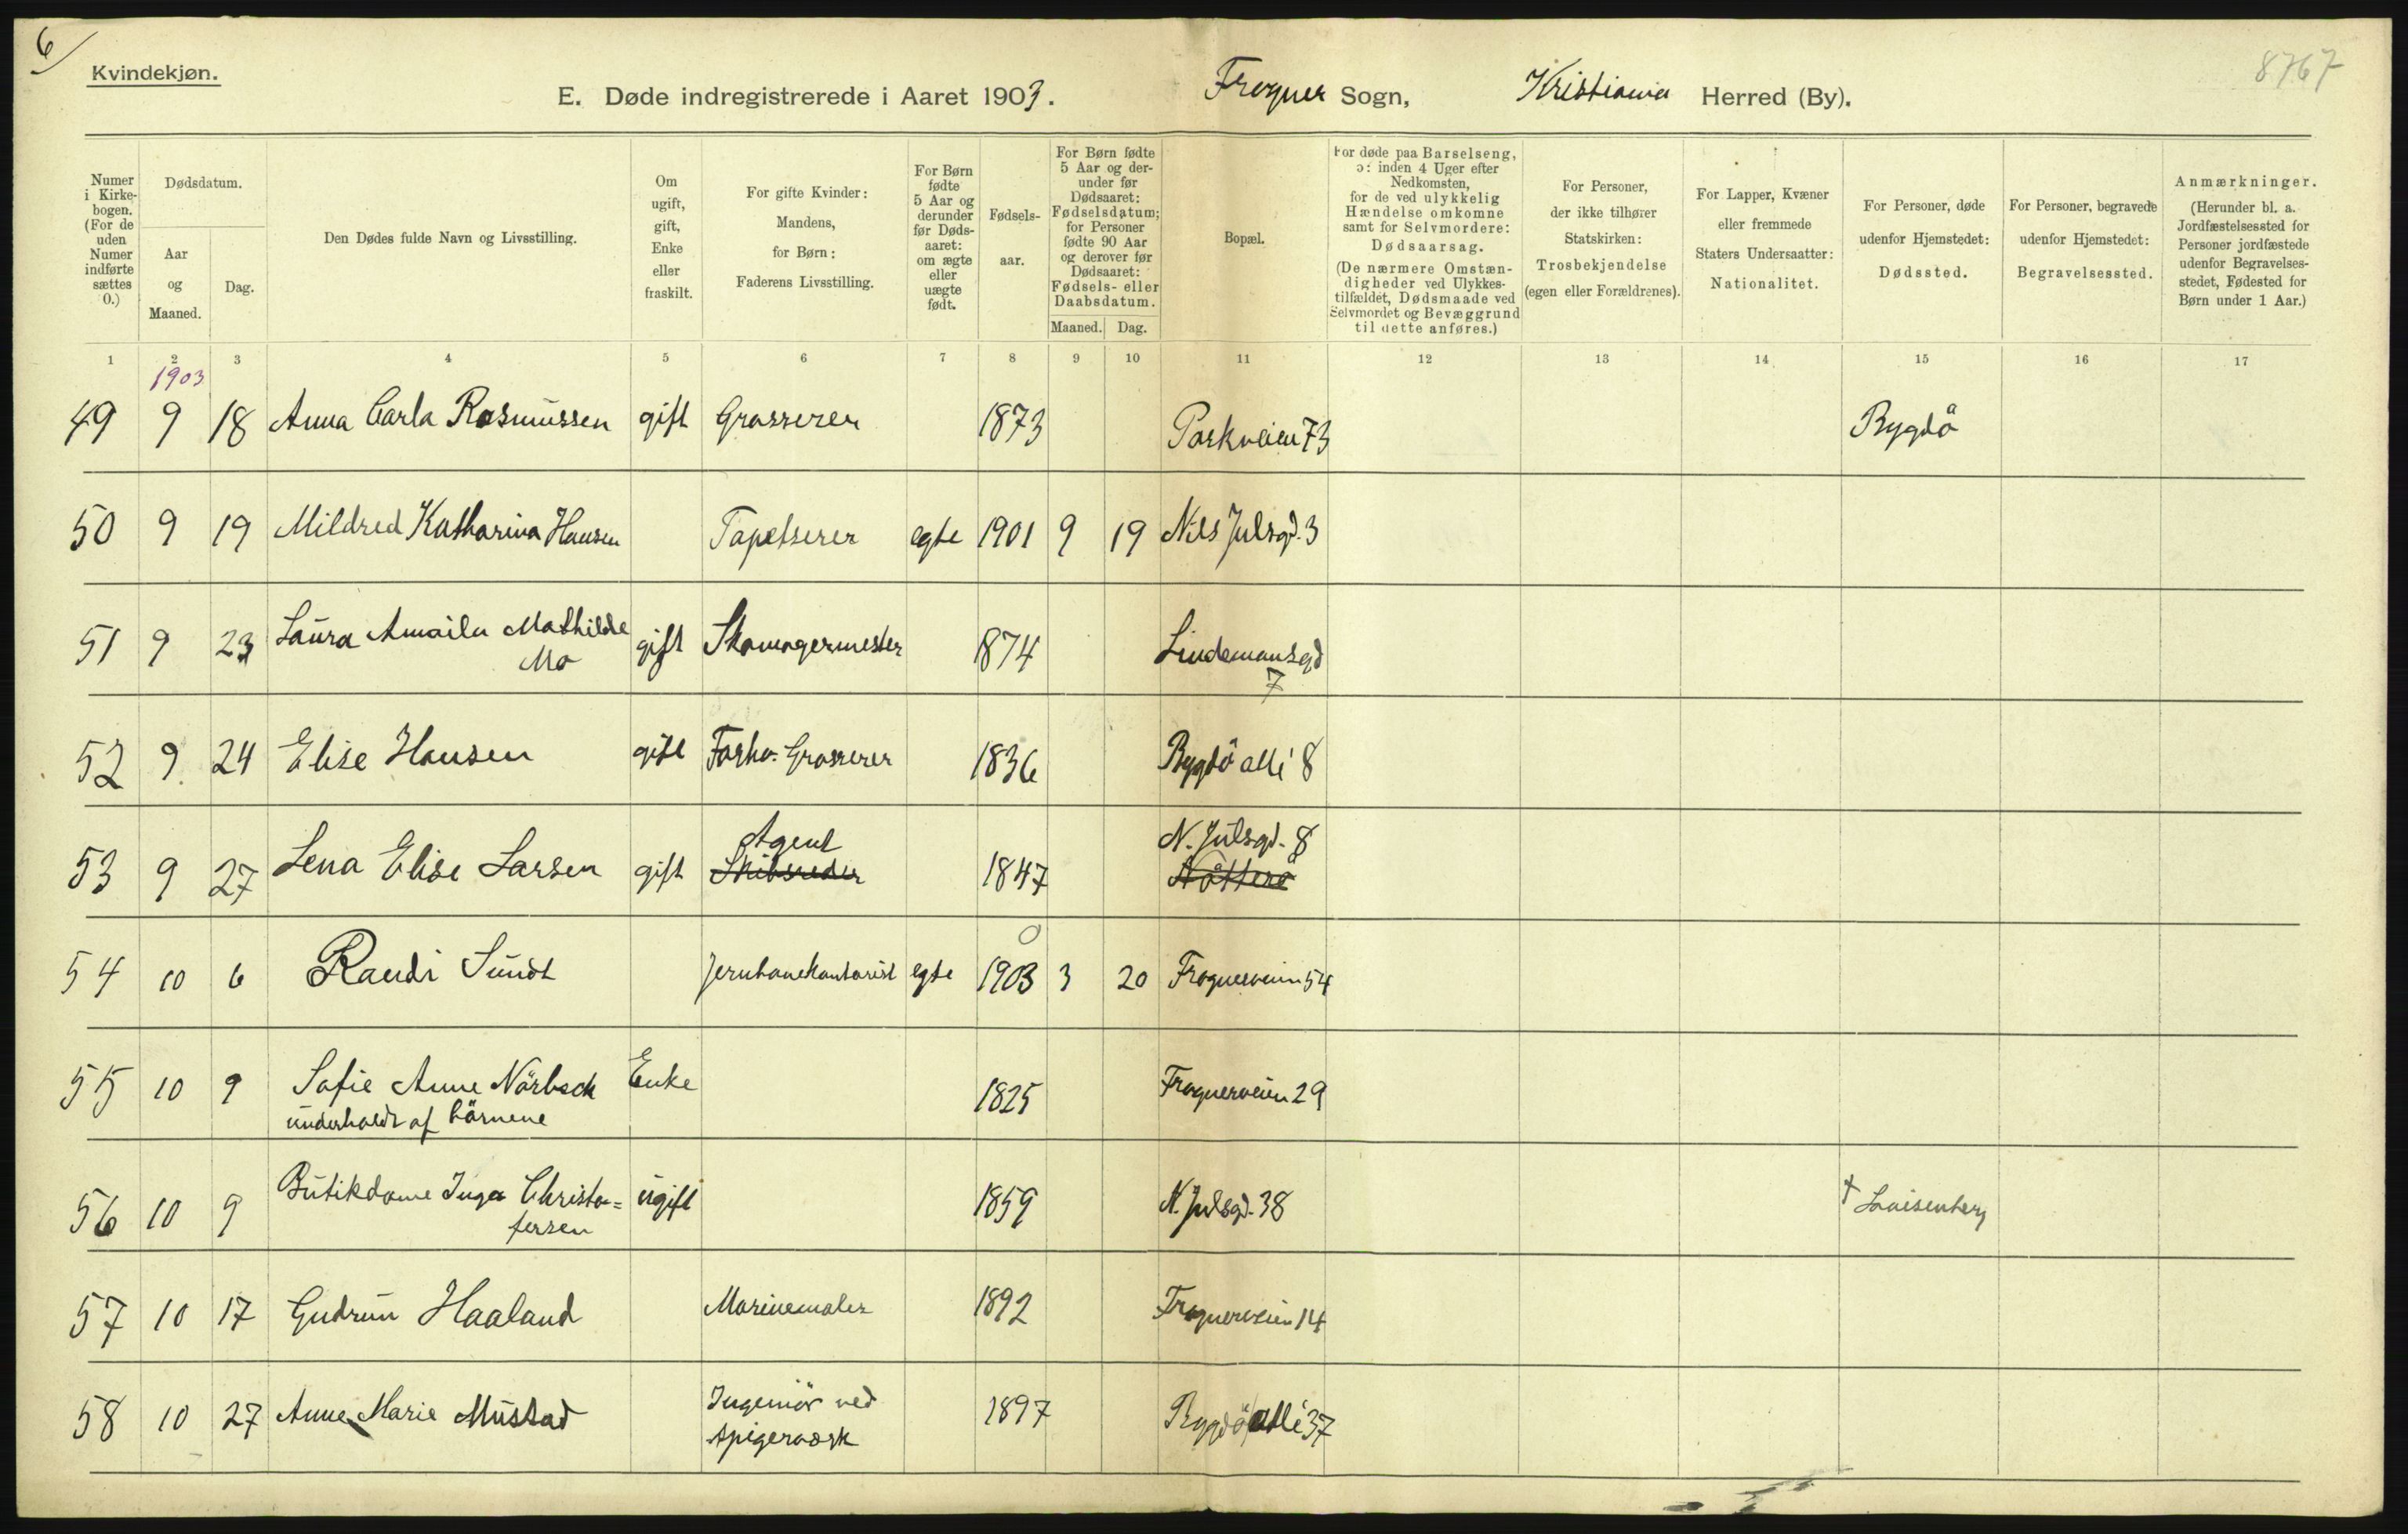 6
Kvindekjøn.
8767
E. Døde indregistrerede i Aaret 1903. Frogner Sogn, Kristiania Herred (By).
Numer i Kirke-bogen. (For de uden Numer indførte sættes 0.)
Dødsdatum.
Aar og Maaned.
Dag.
Den Dødes fulde Navn og Livsstilling.
Om ugift, gift, Enke eller fraskilt.
For gifte Kvinder: Mandens, for Børn: Faderens Livsstilling.
For Børn fødte 5 Aar og derunder før Døds-aaret: om ægte eller uægte født.
Fødsels-aar.
For Børn fødte 5 Aar og der-under før Dødsaaret: Fødselsdatum; for Personer fødte 90 Aar og derover før Dødsaaret: Fødsels- eller Daabsdatum.
Maaned. Dag.
Bopæl.
For døde paa Barselseng, ɔ: inden 4 Uger efter Nedkomsten, for de ved ulykkelig Hændelse omkomne samt for Selvmordere: Dødsaarsag. (De nærmere Omstæn-digheder ved Ulykkes-tilfældet, Dødsmaade ved Selvmordet og Bevæggrund til dette anføres.)
For Personer, der ikke tilhører Statskirken: Trosbekjendelse (egen eller Forældrenes).
For Lapper, Kvæner eller fremmede Staters Undersaatter: Nationalitet.
For Personer, døde udenfor Hjemstedet: Dødssted.
For Personer, begravede udenfor Hjemstedet: Begravelsessted.
Anmærkninger. (Herunder bl. a. Jordfæstelsessted for Personer jordfæstede udenfor Begravelses-stedet, Fødested for Børn under 1 Aar.)
1 2 3 4 5 6 7 8 9 10 11 12 13 14 15 16 17
1903
49 9 18 Anna Carla Rasmussen gift Grosserer 1873 Parkveien 73 Bygdö
50 9 19 Mildred Katharina Hansen Tapetserer egte 1901 9 19 Nils Julsgd. 3
51 9 23 Laura Amaila Mathilde gift Skomagermester 1874 Lindemansgd
Mo 7
52 9 24 Elise Hansen gift Forhv. Grosserer 1836 Bygdö allé 8
Agent N. Julsgd. 8
53 9 27 Lena Elise Larsen gift Skibsreder 1847 Nötterö
54 10 6 Randi Sundt Jernbanekontorist egte 1903 3 20 Frognerveien 54
55 10 9 Sofie Anne Nörbeck Enke 1825 Frognerveien 29
underholdt af börnene
56 10 9 Butikdame Inga Christo= ugift 1859 N. Julsgd. 38 † Lovisenberg
fersen
57 10 17 Gudrun Haaland Marinemaler 1892 Frognerveien 14
58 10 27 Anne Marie Mustad Ingeniör ved 1897 Bygdö allé 37
spigerværk